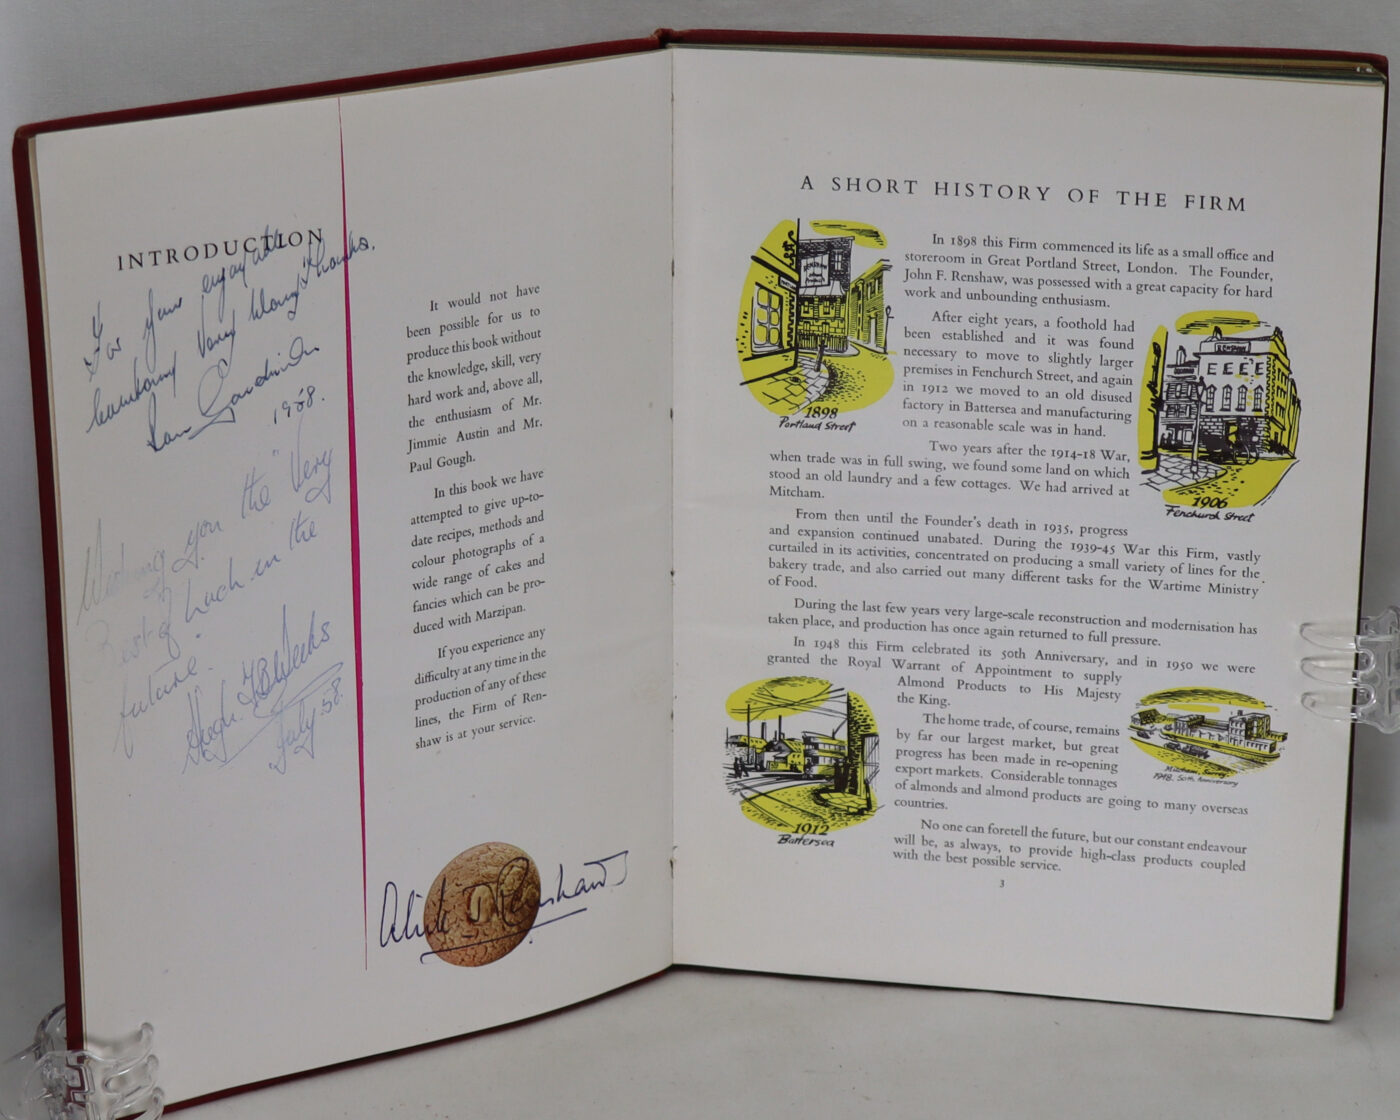 INTRODUCTION
For your enjoyable
company Very Many Thanks.
1958.
Wishing you the "Very
Best of Luck in the
future.
Hugh. Weeks
July 58.
It would not have
been possible for us to
produce this book without
the knowledge, skill, very
hard work and, above all,
the enthusiasm of Mr.
Jimmie Austin and Mr.
Paul Gough.
In this book we have
attempted to give up-to-
date recipes, methods and
colour photographs of a
wide range of cakes and
fancies which can be pro-
duced with Marzipan.
If you experience any
difficulty at any time in the
production of any of these
lines, the Firm of Ren-
shaw is at your service.
Renshaw
A SHORT HISTORY OF THE FIRM
In 1898 this Firm commenced its life as a small office and
storeroom in Great Portland Street, London. The Founder,
John F. Renshaw, was possessed with a great capacity for hard
work and unbounding enthusiasm.
RENSHAW
1898
Portland Street
After eight years, a foothold had
been established and it was found
necessary to move to slightly larger
premises in Fenchurch Street, and again
in 1912 we moved to an old disused
factory in Battersea and manufacturing
on a reasonable scale was in hand.
RENSHAW
1906
Fenchurch Street
Two years after the 1914-18 War,
when trade was in full swing, we found some land on which
stood an old laundry and a few cottages. We had arrived at
Mitcham.
From then until the Founder's death in 1935, progress
and expansion continued unabated. During the 1939-45 War this Firm, vastly
curtailed in its activities, concentrated on producing a small variety of lines for the
bakery trade, and also carried out many different tasks for the Wartime Ministry
of Food.
During the last few years very large-scale reconstruction and modernisation has
taken place, and production has once again returned to full pressure.
In 1948 this Firm celebrated its 50th Anniversary, and in 1950 we were
granted the Royal Warrant of Appointment to supply
Almond Products to His Majesty
the King.
1912
Battersea
Mitcham, Surrey
1948. 50th Anniversary
The home trade, of course, remains
by far our largest market, but great
progress has been made in re-opening
export markets. Considerable tonnages
of almonds and almond products are going to many overseas
countries.
No one can foretell the future, but our constant endeavour
will be, as always, to provide high-class products coupled
with the best possible service.
3